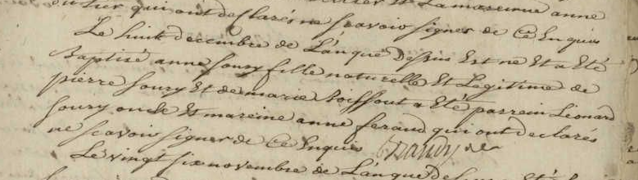 qui ont declarés ne scavoir signer de Ce Enquis
Le huit decembre de L'anque Dessus Est ne Et a Eté
Baptisé anne soury fille naturelle Et Legitime de
pierre soury Et de marie Soissout a Eté parrein Léonard
soury oncle Et mareine anne feraud qui ont declarés
ne scavoir signer de Ce Enquis
Le vingt six novembre de L'anque Dessus